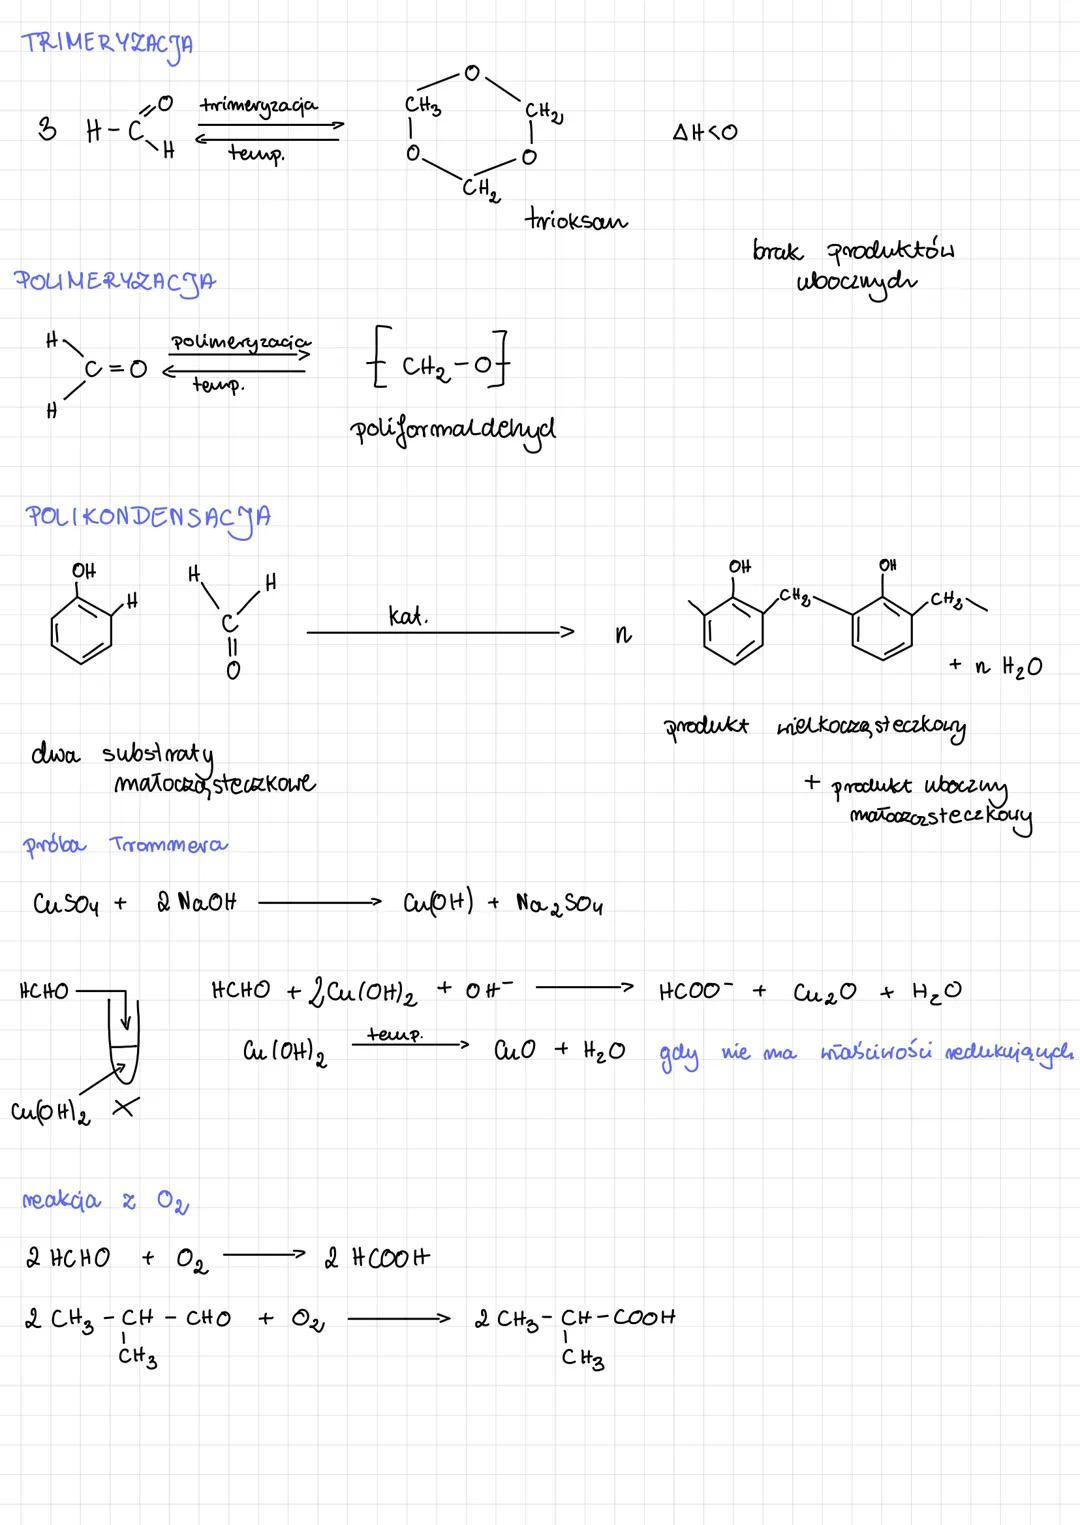 TRIMERYZACJA
3 H-C=O H trimeryzacja temp. O CH3 CH2 O O CH2 ΔH<O
trioksan
brak produktów
ubocznych
POLIMERYZACJA
H H C=O polimeryzacja temp. [CH2-O]
poliformaldehyd
POLIKONDENSACJA
OH H H H C O kat. n OH CH2 OH CH2
+ n H2O
produkt wielkocząsteczkowy
dwa substraty
małocząsteczkowe
+ produkt uboczny
małocząsteczkowy
próba Trommera
CuSO4 + 2 NaOH → Cu(OH) + Na2SO4
HCHO
HCHO + 2Cu(OH)2 + OH- → HCOO- + Cu2O + H2O
Cu(OH)2 temp. → CuO + H2O gdy nie ma właściwości redukujących
Cu(OH)2 X
reakcja z O2
2 HCHO + O2 → 2 HCOOH
2 CH3 - CH - CHO + O2 → 2 CH3 - CH - COOH
CH3 CH3